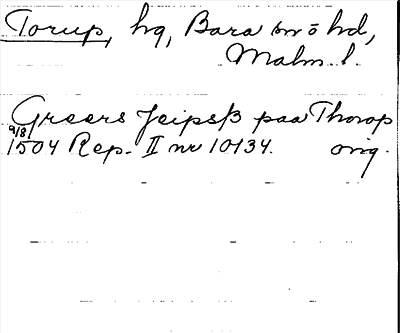 Torup, hg, Bara sn o hd,
Malm. l.
Greers Jeipsß paa Thorop
9/8 1504 Rep. II nr 10134. orig.